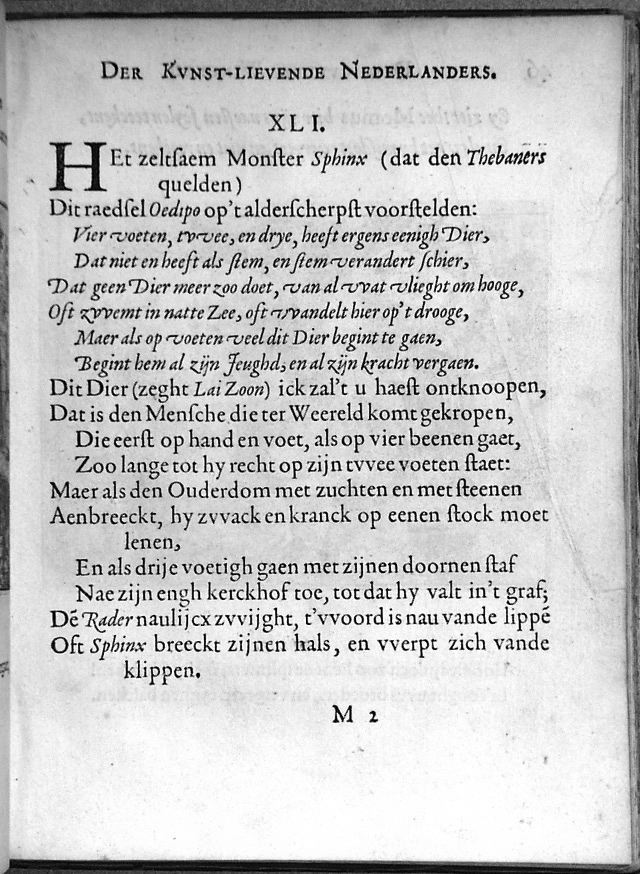 DER KVNST-LIEVENDE NEDERLANDERS.
XLI.
HEt zeltſaem Monſter Sphinx (dat den Thebanērs
quelden)
Dit raedſel Oedipo op't alderſcherpſt voorſtelden:
Vier voeten, tvvee, en drye, heeft ergens eenigh Dier,
Dat niet en heeft als ſtem, en ſtem verandert ſchier,
Dat geen Dier meer zoo doet, van al vvat vlieght om hooge,
Oft zvvemt in natte Zee, oft vvandelt hier op't drooge,
Maer als op voeten veel dit Dier begint te gaen,
Begint hem al zijn Jeughd, en al zijn kracht vergaen.
Dit Dier (zeght Lai Zoon) ick zal't u haeſt ontknoopen,
Dat is den Menſche die ter Weereld komt gekropen,
Die eerſt op hand en voet, als op vier beenen gaet,
Zoo lange tot hy recht op zijn tvvee voeten ſtaet:
Maer als den Ouderdom met zuchten en met ſteenen
Aenbreeckt, hy zvvack en kranck op eenen ſtock moet
lenen,
En als drije voetigh gaen met zijnen doornen ſtaf
Nae zijn engh kerckhof toe, tot dat hy valt in't graf;
Dē Rader naulijcx zvvijght, t'vvoord is nau vande lippē
Oft Sphinx breeckt zijnen hals, en vverpt zich vande
klippen.
M 2